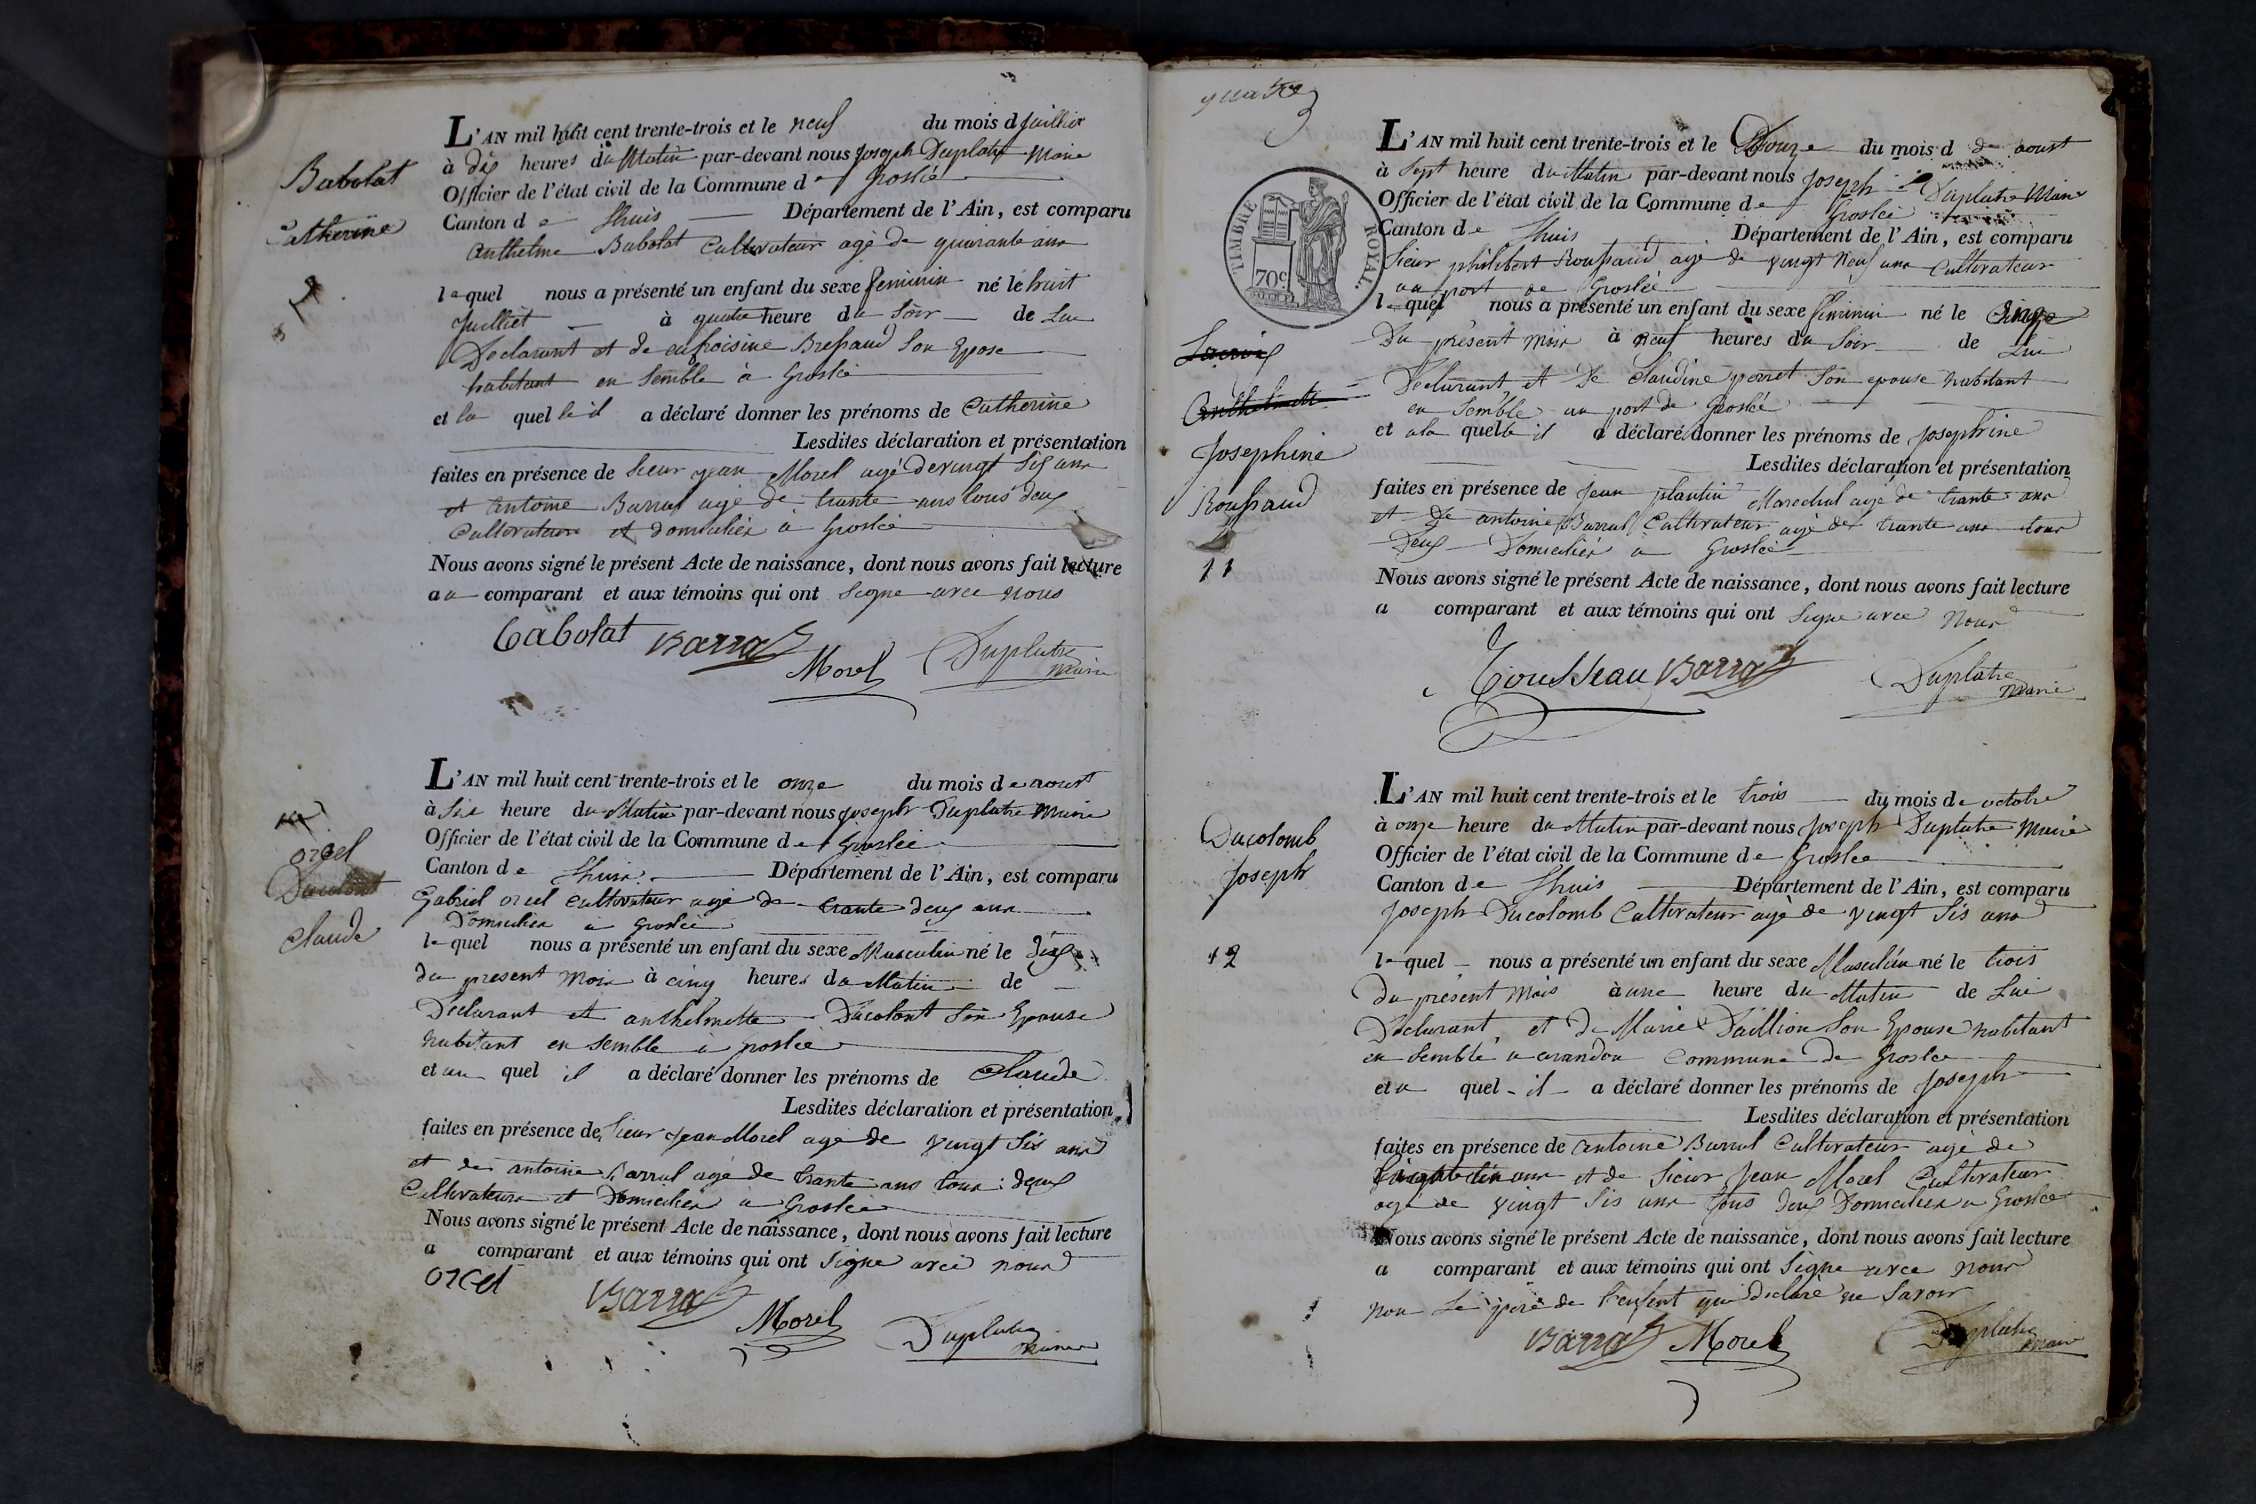 Babolat
Catherine
L'AN mil huit cent trente-trois et le neuf du mois d Juillier
à dix heures du Matin par-devant nous Joseph Duplatre Maire
Officier de l'état civil de la Commune de Groslée
Canton de Lhuis Département de l'Ain, est comparu
Anthelme Babolat Cultivateur agé de quarante ans
lequel nous a présenté un enfant du sexe feminin né le huit
Juilliet à quatre heure du Soir de Lui
Declarant et de eufroisine Bressaud Son Epose
habitant en Semble à Groslée
et la quel le il a déclaré donner les prénoms de Catherine
Lesdites déclaration et présentation
faites en présence de Sieur jean Morel agé de vingt Sis ans
et Antoine Barral agé de trante ans tous deux
Cultivateurs et Domiciliés à Groslée
Nous avons signé le présent Acte de naissance, dont nous avons fait lecture
au comparant et aux témoins qui ont Signe avec nous
Babolat Barral
Morel Duplatre
Maire
orcel
Claude
L'AN mil huit cent trente-trois et le onze du mois de aoust
à Sis heure du Matin par-devant nous Joseph Duplatre Maire
Officier de l'état civil de la Commune de Groslée
Canton de Lhuis Département de l'Ain, est comparu
Gabriel orcel Cultivateur agé de trante deux ans
Domicilier a Groslée
lequel nous a présenté un enfant du sexe Masculin né le dix
du present Mois à cinq heures du Matin de
Declarant et anthelmette Ducolont Son Epouse
habitant en Semble a groslée
et au quel il a déclaré donner les prénoms de Claude
Lesdites déclaration et présentation
faites en présence de Sieur Jean Morel agé de vingt Sis ans
et de antoine Barral agé de trante ans tous deux
Cultivateurs et Domiciliés a Groslée
Nous avons signé le présent Acte de naissance, dont nous avons fait lecture
a comparant et aux témoins qui ont Signe avec nous
orcel Barral
Morel Duplatre
Maire
quatre
TIMBRE ROYAL.
70c
Josephine
Roussaud
11
L'AN mil huit cent trente-trois et le Douze du mois d de aoust
à Sept heure du Matin par-devant nous Joseph Duplatre Maire
Officier de l'état civil de la Commune de Groslée
Canton de Lhuis Département de l'Ain, est comparu
Sieur philibert Roussaud agé de vingt Neuf ans Cultivateur
au port de Groslée
lequel nous a présenté un enfant du sexe feminin né le Onze
Du présent Mois à neuf heures du Soir de Lui
Declarant et De Claudine perret Son epouse habitant
en Semble au port de Groslée
et a la quelle il a déclaré donner les prénoms de Josephine
Lesdites déclaration et présentation
faites en présence de Jean plantin Marechal agé de trante ans
et De antoine Barral Cultivateur agé de trante ans tous
Deux Domiciliés a Groslée
Nous avons signé le présent Acte de naissance, dont nous avons fait lecture
a comparant et aux témoins qui ont Signe avec Nous
Rousseau Barral Duplatre
Maire
Ducolomb
Joseph
12
L'AN mil huit cent trente-trois et le trois du mois de octobre
à onze heure du Matin par-devant nous Joseph Duplatre Maire
Officier de l'état civil de la Commune de Groslée
Canton de Lhuis Département de l'Ain, est comparu
Joseph Ducolomb Cultivateur agé de vingt Sis ans
lequel nous a présenté un enfant du sexe Masculin né le trois
du présent Mois à une heure du Matin de Lui
Declarant et de Marie Daillion Son Epouse habitant
en Semble a arandon Commune de Groslée
et a quel il a déclaré donner les prénoms de Joseph
Lesdites déclaration et présentation
faites en présence de antoine Barral Cultivateur agé de
ans et de Sieur Jean Morel Cultivateur
agé de vingt Sis ans tous deux Domiciliés a Groslée
Nous avons signé le présent Acte de naissance, dont nous avons fait lecture
a comparant et aux témoins qui ont Signe avec nous
non Le père de l'enfent qui Declare ne Savoir
Barral Morel Duplatre
Maire